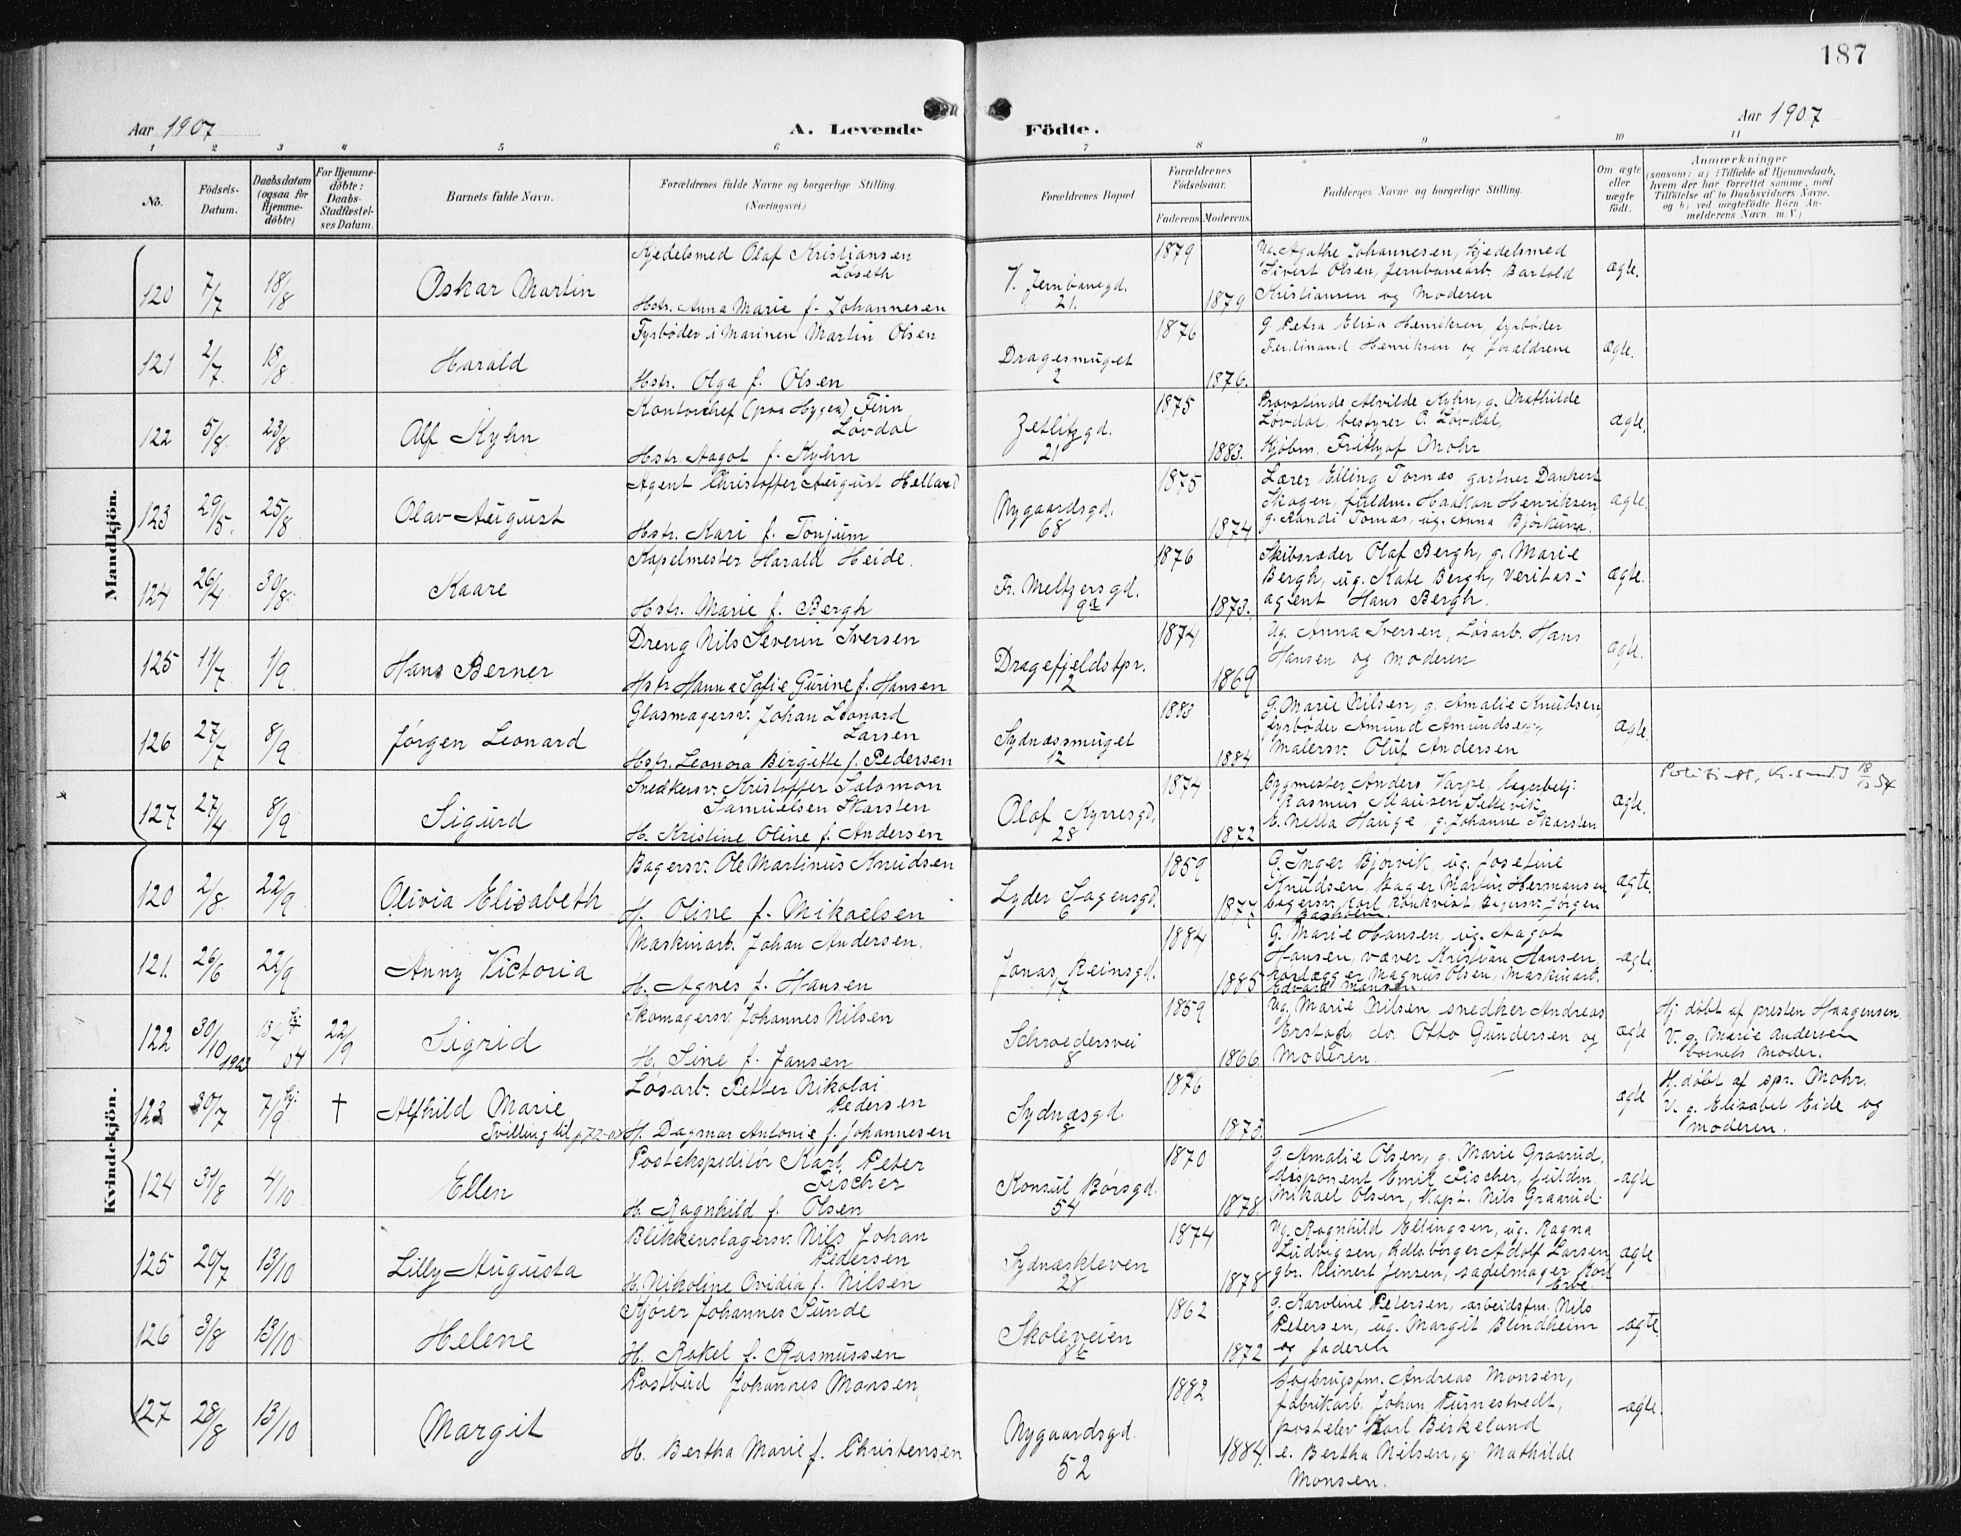 187
Aar 1907
A. Levende Födte.
Aar 1907
1 2 3 4 5 6 7 8 9 10 11
No.
Födsels-Datum.
Daabsdatum (ogsaa for Hjemme-döbte)
For Hjemme-döbte: Daabs-Stadfæstel-ses Datum.
Barnets fulde Navn.
Forældrenes fulde Navne og borgerlige Stilling. (Næringsvei.)
Forældrenes Bopæl.
Forældrenes Födselsaar.
Faderens. Moderens.
Fadderes Navne og borgerlige Stilling.
Om ægte eller uægte födt.
Anmærkninger
(saasom: a) i Tilfælde af Hjemmedaab, hvem der har forrettet samme, med Tilföielse af to Daabsvidners Navne, og b) ved uægtefödte Börn An-melderens Navn m. V.)
Mandkjön.
120 7/7 18/8 Oskar Martin
Kjedelsmed Olaf Kristiansen
Løseth
Hstr. Anna Marie f. Johannesen
V. Jernbanegd.
21.
1879 1879
Ug. Agathe Johannesen, Kjedelsmed
Sivert Olsen, jernbanearb. Bartold
Kristiansen og Moderen
ægte.
121 2/7 18/8 Harald
Fyrbøder i Marinen Martin Olsen
Hstr. Olga f. Olsen
Dragesmuget
2
1876 1876.
G. Petra Elisa Henriksen, fyrbøder
Ferdinand Henriksen og forældrene
ægte.
122 5/8 23/8 Alf Kyhn
Kontorchef (paa Hygea) Finn
Løvdal
Hstr. Aagot f. Kyhn
Zetlitzgd.
21
1875 1883.
Provstinde Alvilde Kyhn, g. Mathilde
Løvdal, bestyrer C. Løvdal,
Kjøbm. Frithjof Mohr
ægte.
123 29/5. 25/8 Olav August
Agent Christoffer August Helland
Hstr. Kari f. Tonjum
Nygaardsgd.
68
1875 1874
Lærer Elling Tornæs, gartner Dankert
Skagen, fuldm. Haakon Henriksen
g. Randi Tornæs, ug. Anna
ægte.
124 26/4 30/8. Kaare
Kapelmester Harald Heide.
Hstr. Marie f. Bergh
Fr. Meltzersgd.
9a
1876 1873.
Skibsræder Olaf Bergh, g. Marie
Bergh, ug. Kate Bergh, Veritas-
agent Hans Bergh.
ægte.
125 11/7 1/9 Hans Berner
Dreng Nils Severin Iversen
Hstr Hanna Sofie Gurine f. Hansen
Dragefjeldstpr.
2
1874 1869
Ug. Anna Iversen, Løsarb. Hans
Hansen og moderen
ægte.
126 27/7 8/9 Jørgen Leonard
Glasmagersv. Johan Leonard
Larsen
Hstr. Leonora Birgitte f. Pedersen
Sydnæssmuget
12
1883 1884
G. Marie Nilsen, g. Amalie Knudsen,
fyrbøder Amund Amundsen,
Malersv. Oluf Andersen
ægte.
127 27/4 8/9 Sigurd
Snedkersv. Kristoffer Salomon
Samuelsen Skarsten
H. Kristine Oline f. Andersen
Olaf Kyrresgd.
28
1874 1872
Bygmester Anders Varpe, lagerbetj.
Rasmus Klausen
Nilla Hauge, g. Johanne Skarsten
ægte.
Kvindekjön.
120 2/8 22/9 Olivia Elisabeth
Bagersv. Ole Martinus Knudsen
H. Oline f. Mikaelsen
Lyder Sagensgd.
6
1859 1877
G. Inger Bjørvik, ug. Josefine
Knudsen, Bager Martin Hermansen
bagersv. Karl Bagersv. Jørgen
ægte.
121. 26/6 22/9 Anny Victoria
Maskinarb. Johan Andersen.
H. Agnes f. Hansen
Jonas Reinsgd.
17
1884 1885
G. Marie Hansen, ug. Aagot
Hansen, væver Kristian Hansen,
Magnus Olsen, Maskinarb.
Edvard
ægte.
122 30/10 1903 13/4 04 22/9 Sigrid
Skomagersv. Johannes Nilsen
H. Sine f. Jansen
Schroedersvei
8
1859 1866
Ug. Marie Nilsen, snedker Andreas
Erstad, do. Otto Gundersen og
moderen.
ægte
Hj. døbt af presten Haagensen.
V. g. Marie Andersen
barnets moder.
123. 30/7 7/9 † Alfhild Marie
Tvilling til
Løsarb. Petter Nikolai
Pedersen
H. Dagmar Antonie f. Johannesen
Sydnæsgd.
8
1876 1873.
ægte
H. døbt af spr. Mohr.
V. g. Elisabet Eide og
moderen.
124 31/8 4/10 Ellen
Postekspeditør Karl Peter
Fischer
H. Ragnhild f. Olsen
Konsul Børsgd.
54
1870 1878.
G. Amalie Olsen, g. Marie Graarud,
disponent Emil Fischer, fuldm.
Mikael Olsen, Kapt. Nils Graarud.
ægte
125 20/7 13/10 Lilly Augusta
Blikkenslagersv. Nils Johan
Pedersen
H. Nikoline Ovidia f. Nilsen
Sydnæskleven
28
1874 1878
Ug. Ragnhild Ellingsen, ug. Ragna
Ludvigsen, Adolf Larsen
gbr. Klinert Jensen, sagelmager Karl
ægte
126 3/8 13/10 Helene
Kjører Johannes Sunde
H. Rakel f. Rasmussen
Skoleveien
8b
1862 1872
G. Karoline Petersen, arbeidsfm. Nils
Petersen, ug. Margit Blindheim
og faderen
ægte
127 28/8 13/10 Margit
Postbud Johannes Monsen,
H. Bertha Marie f. Christensen
Nygaardsgd.
52
1882 1884.
Andreas Monsen,
fabrikarb. Johan
postelev Karl Birkeland
e. Bertha Nilsen, g. Mathilde
Monsen.
ægte.